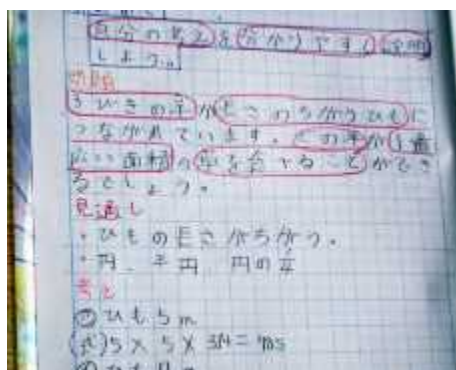 自分の考えを分かりやすく説明
しよう。
問題
3びきの羊が長さのちがうひもに
つながれています。どの羊が1番
広い面積の草を食べることができ
るでしょう。
見通し
・ひもの長さがちがう。
・円、半円、円の1/4
考え
ひも5m
(式)5×5×3.14=78.5